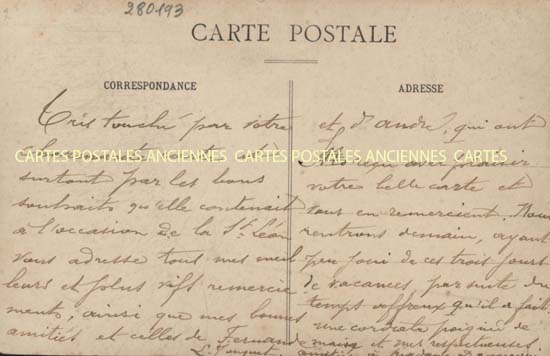 280193
CARTE POSTALE
CORRESPONDANCE
Très touché par votre
CARTES POSTALES ANCIENNES CARTES POSTALES ANCIENNES CARTES
surtout par les bons
souhaits qu'elle contenait
à l'occasion de la St Léon
vous adresse tous mes meil
leurs et plus vifs remercie
ments, ainsi que mes bonnes
amitiés et celles de Fernande
ADRESSE
et d'andré, qui ont
votre belle carte et
vous en remercient. Nous
rentrons demain, ayant
peu joui de ces trois jours
de vacances, par suite du
temps affreux qu'il a fait.
une cordiale poignée de
main et mes respectueuses